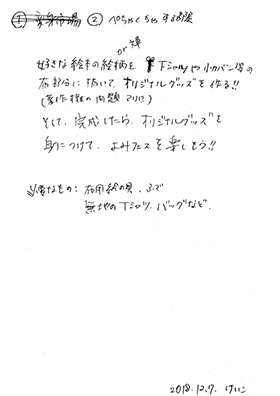 ② ぺちゃくちゃする部屋
or 詩
好きな絵本の絵柄を Tシャツや小カバン等の
布部分に描いて、オリジナルグッズを作る!!
(著作権の問題アリ?)
そして、完成したら、オリジナルグッズを
身につけて、よみフェスを楽しもう!!
必要なもの：布用絵の具、ふで
無地のTシャツ、バッグなど.
2018.12.7. けいこ